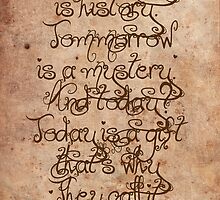 is history.
Tommorrow
is a mystery
And today?
Today is a gift
that's why
they call it